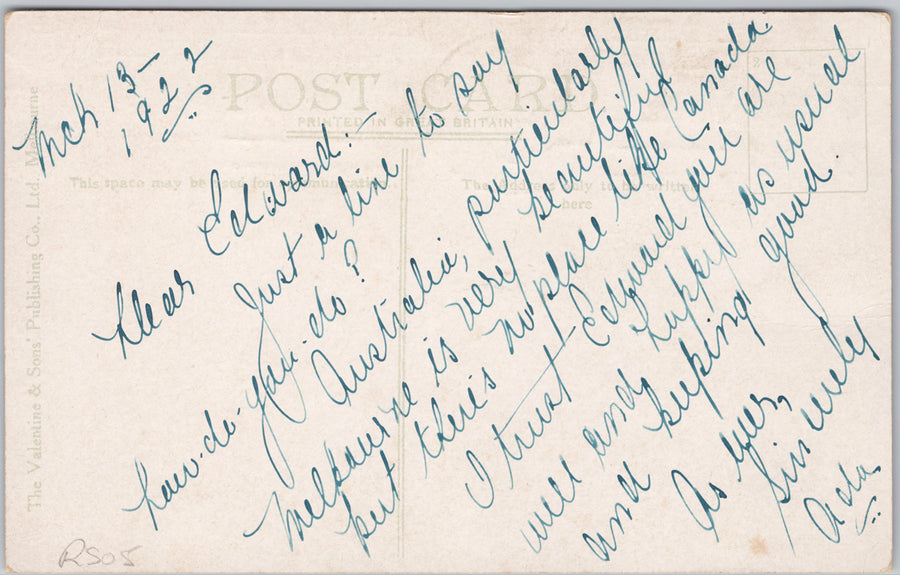 POST CARD
PRINTED IN GREAT BRITAIN
This space may be used for communication.
The address only to be written
here
The Valentine & Sons' Publishing Co., Ltd. Melbourne
Mch 13-
1922
Dear Edward:-
Just a line to say
how-do-you-do?
Australia, particularly
Melbourne is very beautiful
but there's no place like Canada.
I trust Edward you are
well and happy as usual
and keeping good.
As ever,
Sincerely
Ada.
RS05